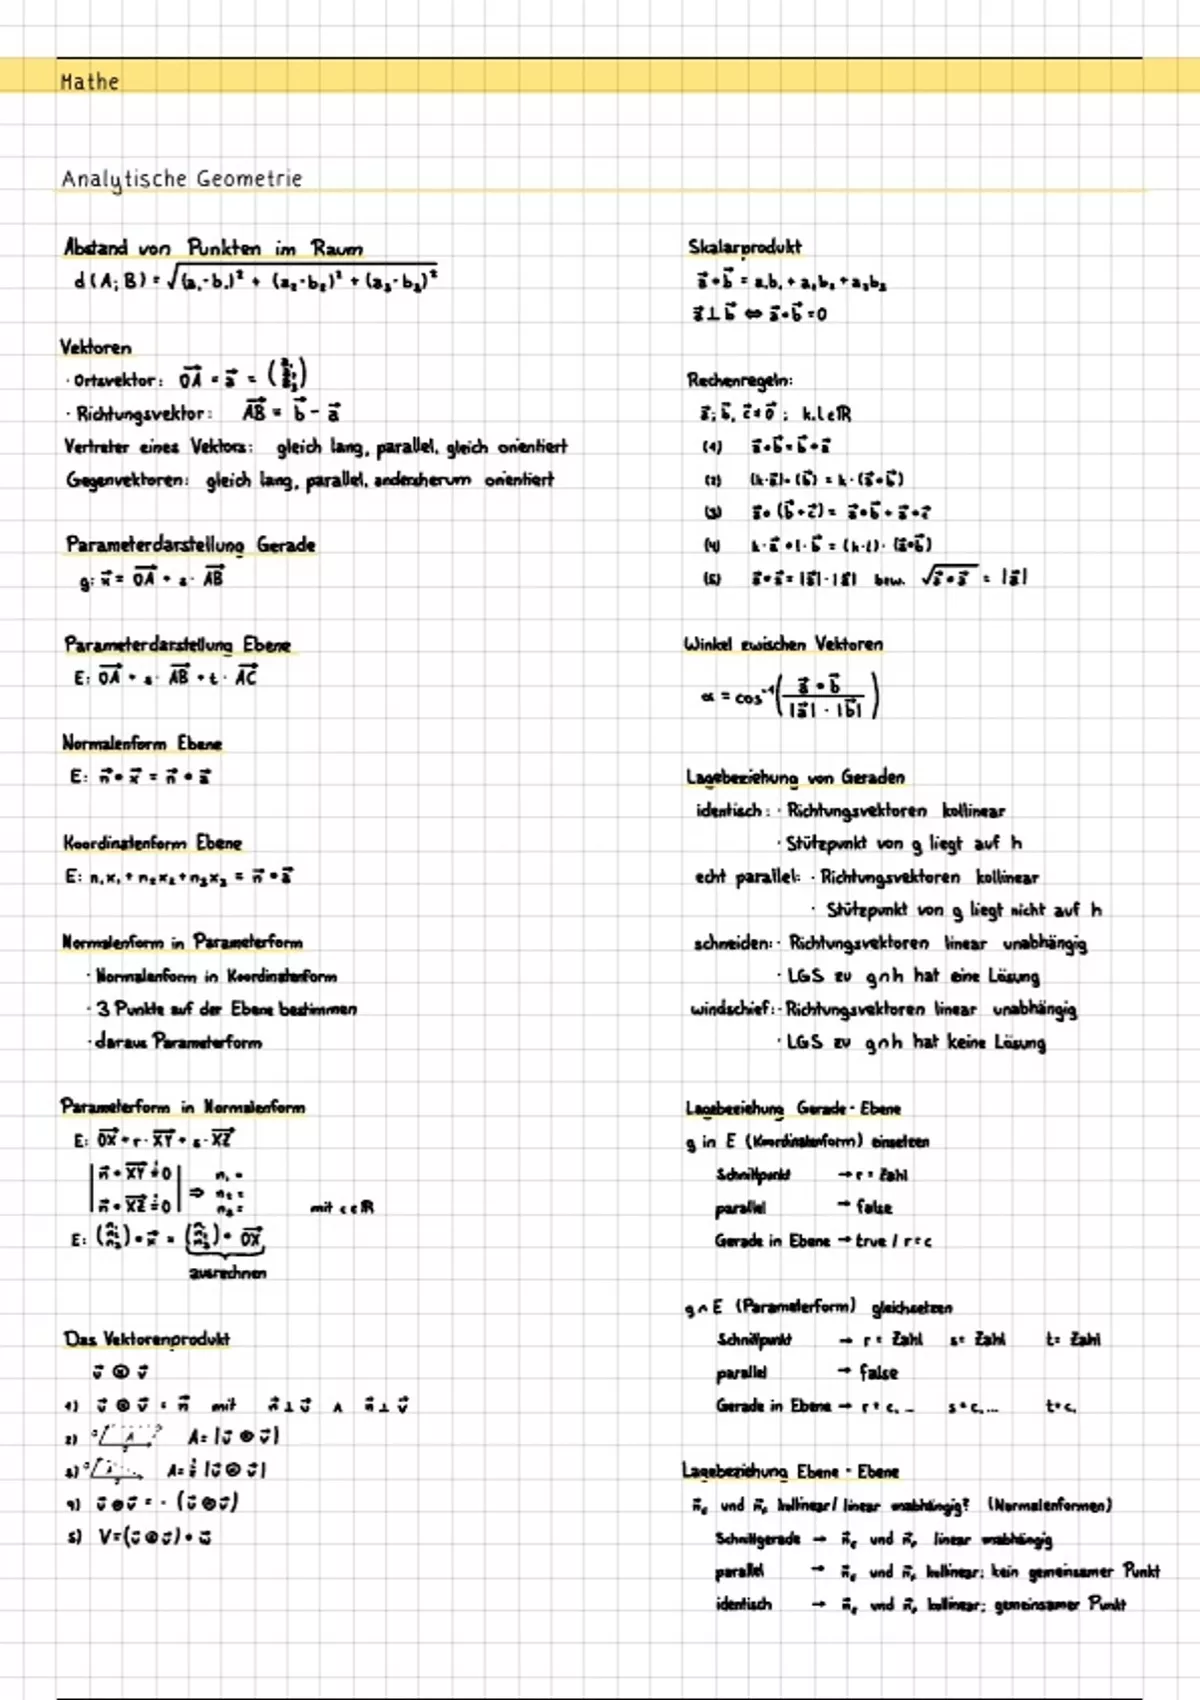 Mathe
Analytische Geometrie
Abstand von Punkten im Raum
d(A;B) = √((a₁-b₁)² + (a₂-b₂)² + (a₃-b₃)²)
Vektoren
· Ortsvektor: OA⃗ = a⃗ = (a₁ a₂ a₃)
· Richtungsvektor: AB⃗ = b⃗ - a⃗
Vertreter eines Vektors: gleich lang, parallel, gleich orientiert
Gegenvektoren: gleich lang, parallel, andersherum orientiert
Parameterdarstellung Gerade
g: x⃗ = OA⃗ + s · AB⃗
Parameterdarstellung Ebene
E: OA⃗ + s · AB⃗ + t · AC⃗
Normalenform Ebene
E: n⃗ • x⃗ = n⃗ • a⃗
Koordinatenform Ebene
E: n₁x₁ + n₂x₂ + n₃x₃ = n⃗ • a⃗
Normalenform in Parameterform
· Normalenform in Koordinatenform
· 3 Punkte auf der Ebene bestimmen
· daraus Parameterform
Parameterform in Normalenform
E: OX⃗ + r · XY⃗ + s · XZ⃗
|n⃗ • XY⃗ = 0| n₁ =
⇒ n₂ =
|n⃗ • XZ⃗ = 0| n₃ = mit c ∈ ℝ
E: (n₁ n₂ n₃) • x⃗ = (n₁ n₂ n₃) • OX⃗
ausrechnen
Das Vektorenprodukt
u⃗ ⊗ v⃗
1) u⃗ ⊗ v⃗ = n⃗ mit n⃗ ⊥ u⃗ ∧ n⃗ ⊥ v⃗
2) A A = |u⃗ ⊗ v⃗|
3) A A = ½ |u⃗ ⊗ v⃗|
4) u⃗ ⊗ v⃗ = - (u⃗ ⊗ v⃗)
5) V = (u⃗ ⊗ v⃗) • w⃗
Skalarprodukt
a⃗ • b⃗ = a₁b₁ + a₂b₂ + a₃b₃
a⃗ ⊥ b⃗ ⇔ a⃗ • b⃗ = 0
Rechenregeln:
a⃗; b⃗, c⃗ ≠ 0⃗ ; k,l ∈ ℝ
(1) a⃗ • b⃗ = b⃗ • a⃗
(2) (k · a⃗) • (b⃗) = k · (a⃗ • b⃗)
(3) a⃗ • (b⃗ + c⃗) = a⃗ • b⃗ + a⃗ • c⃗
(4) k · a⃗ • l · b⃗ = (k · l) · (a⃗ • b⃗)
(5) a⃗ • a⃗ = |a⃗| · |a⃗| bzw. √(a⃗ • a⃗) = |a⃗|
Winkel zwischen Vektoren
α = cos⁻¹(a⃗ • b⃗ / |a⃗| · |b⃗|)
Lagebeziehung von Geraden
identisch: · Richtungsvektoren kollinear
· Stützpunkt von g liegt auf h
echt parallel: · Richtungsvektoren kollinear
· Stützpunkt von g liegt nicht auf h
schneiden: · Richtungsvektoren linear unabhängig
· LGS zu g∩h hat eine Lösung
windschief: · Richtungsvektoren linear unabhängig
· LGS zu g∩h hat keine Lösung
Lagebeziehung Gerade - Ebene
g in E (Koordinatenform) einsetzen
Schnittpunkt → r = Zahl
parallel → false
Gerade in Ebene → true / r = c
g∩E (Parameterform) gleichsetzen
Schnittpunkt → r = Zahl s = Zahl t = Zahl
parallel → false
Gerade in Ebene → r = c, ... s = c, ... t = c,
Lagebeziehung Ebene - Ebene
n⃗ₑ und n⃗ꜰ kollinear / linear unabhängig? (Normalenformen)
Schnittgerade → n⃗ₑ und n⃗ꜰ linear unabhängig
parallel → n⃗ₑ und n⃗ꜰ kollinear; kein gemeinsamer Punkt
identisch → n⃗ₑ und n⃗ꜰ kollinear; gemeinsamer Punkt